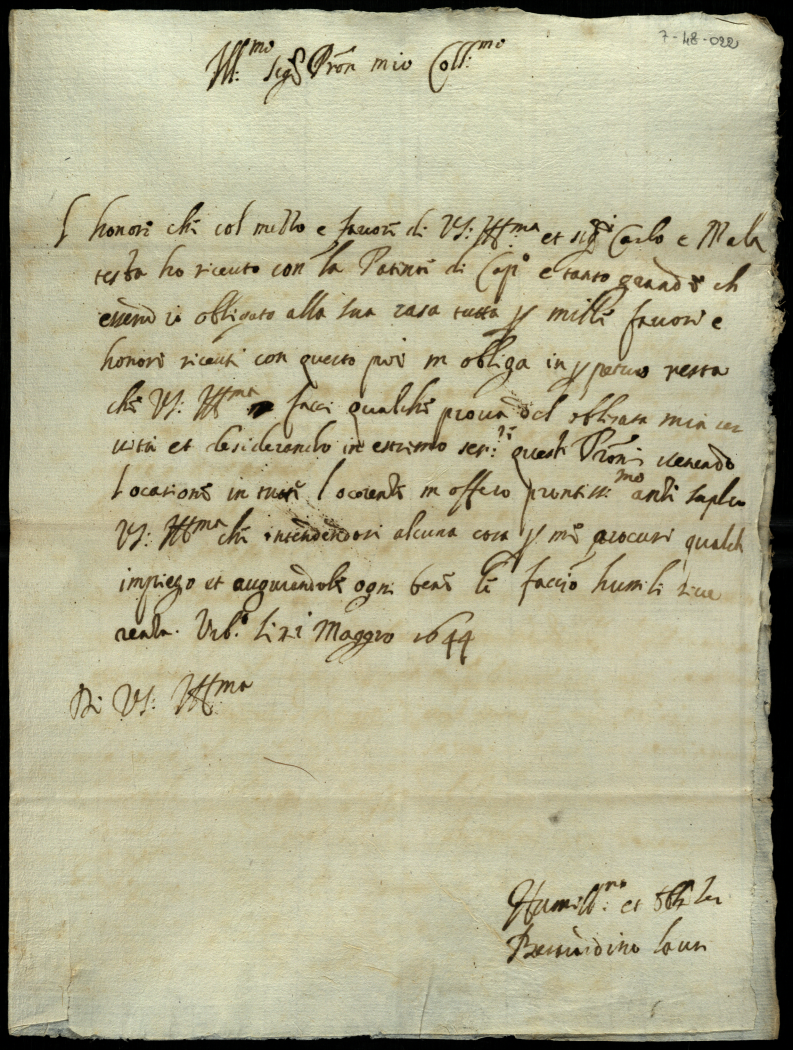 7-48-022
Ill:mo Sigr Pron mio Coll:mo
honori che col mezzo e favori di VS: Ill:ma et sigri Carlo e Mala
testa ho riceuto con la Patente di Capo e tanto grande ch
obligato alla sua casa tutta p mille favori e
honori riceuti con questo poi m obliga in ppetuo resta
che VS: Illma facci qualche prova del obligata mia ser
vitù et desiderando in estremo ser:re questi Proni venendo
l ocasione in tutte l ocorenze m offero prontiss:mo anzi suplico
VS: Illma che intendendosi alcuna cosa p me procuri qualch
impiego et augurandole ogni bene le faccio humile rive
renza. Urb.o li Maggio 1644
Di VS: Ill:ma
Humiliss:mo et
Bernardino